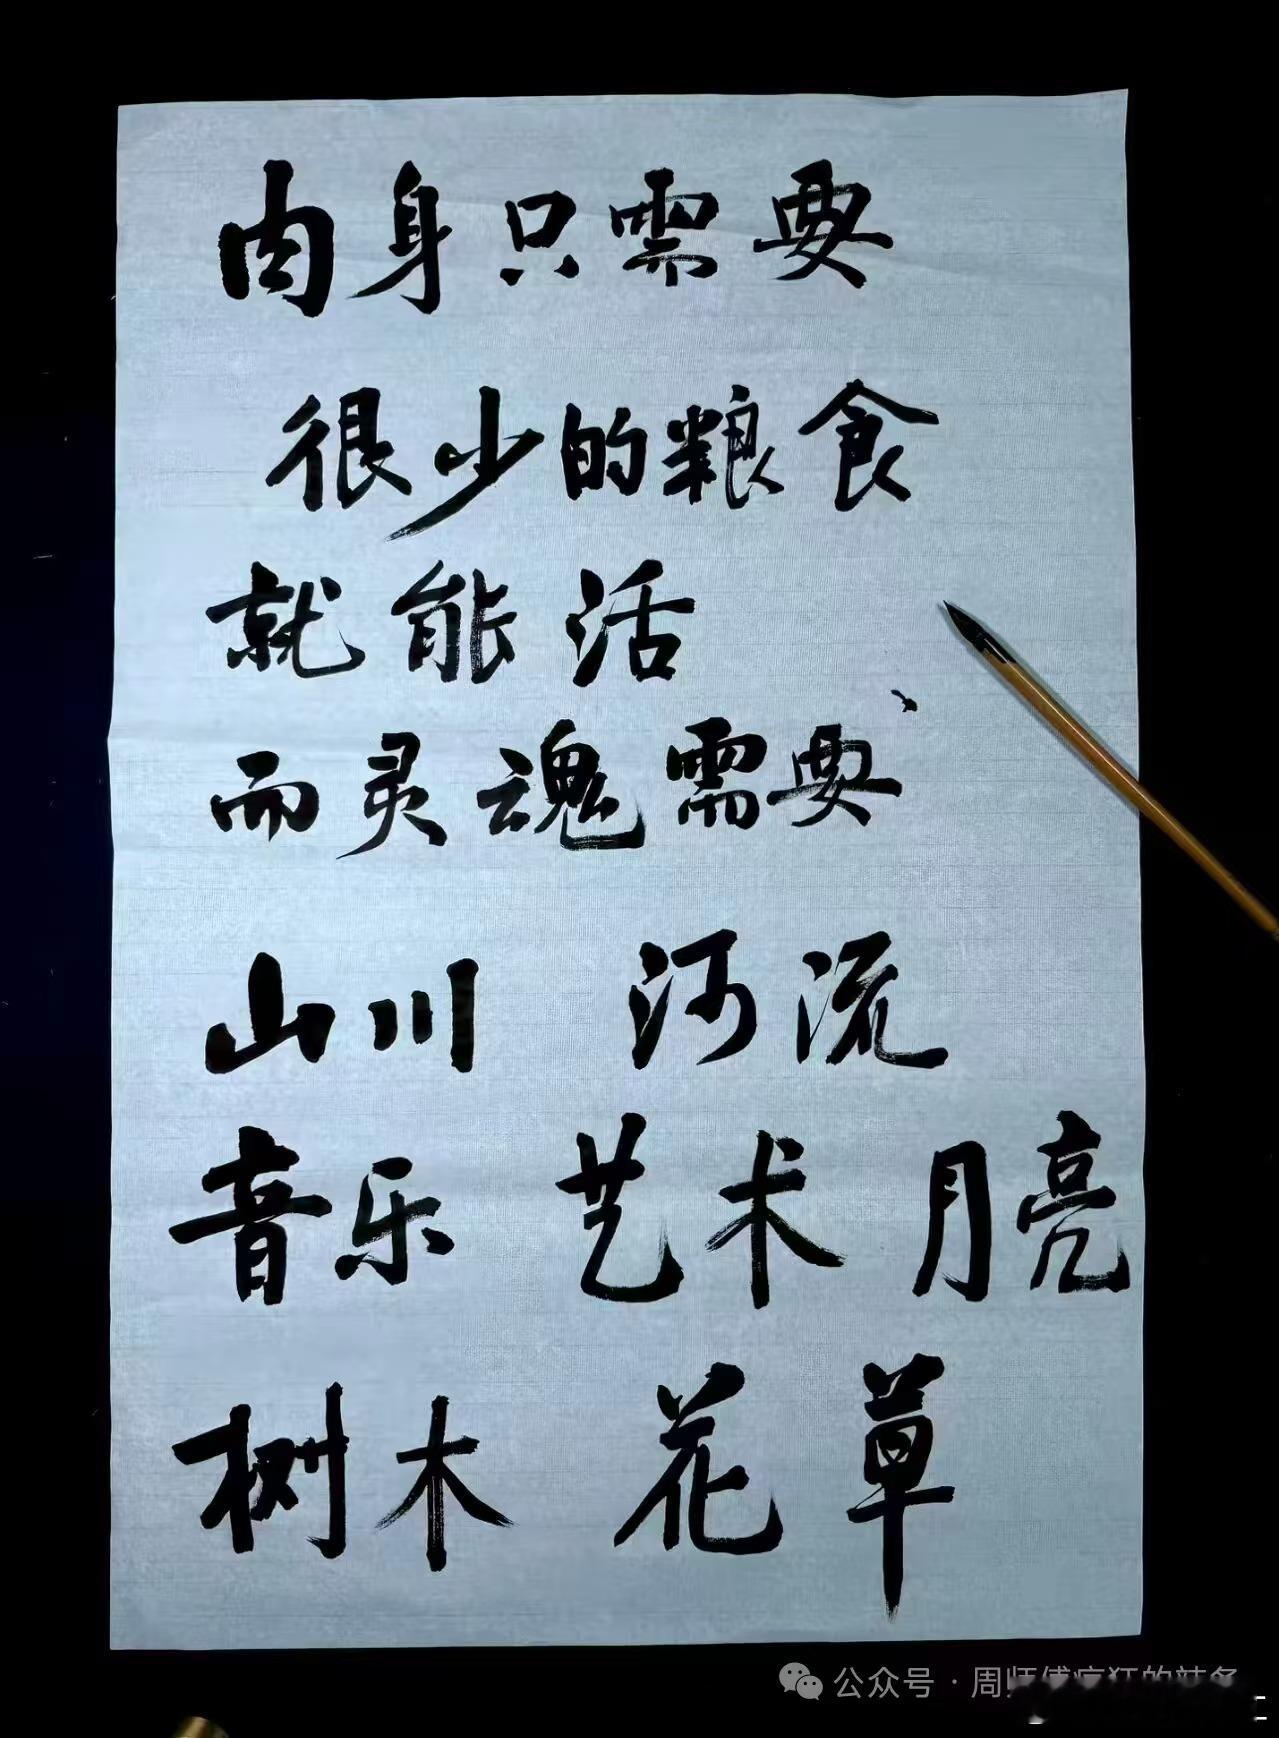 肉身只需要
很少的粮食
就能活
而灵魂需要
山川 河流
音乐 艺术 月亮
树木 花草
公众号 · 周师傅疯狂的辣条